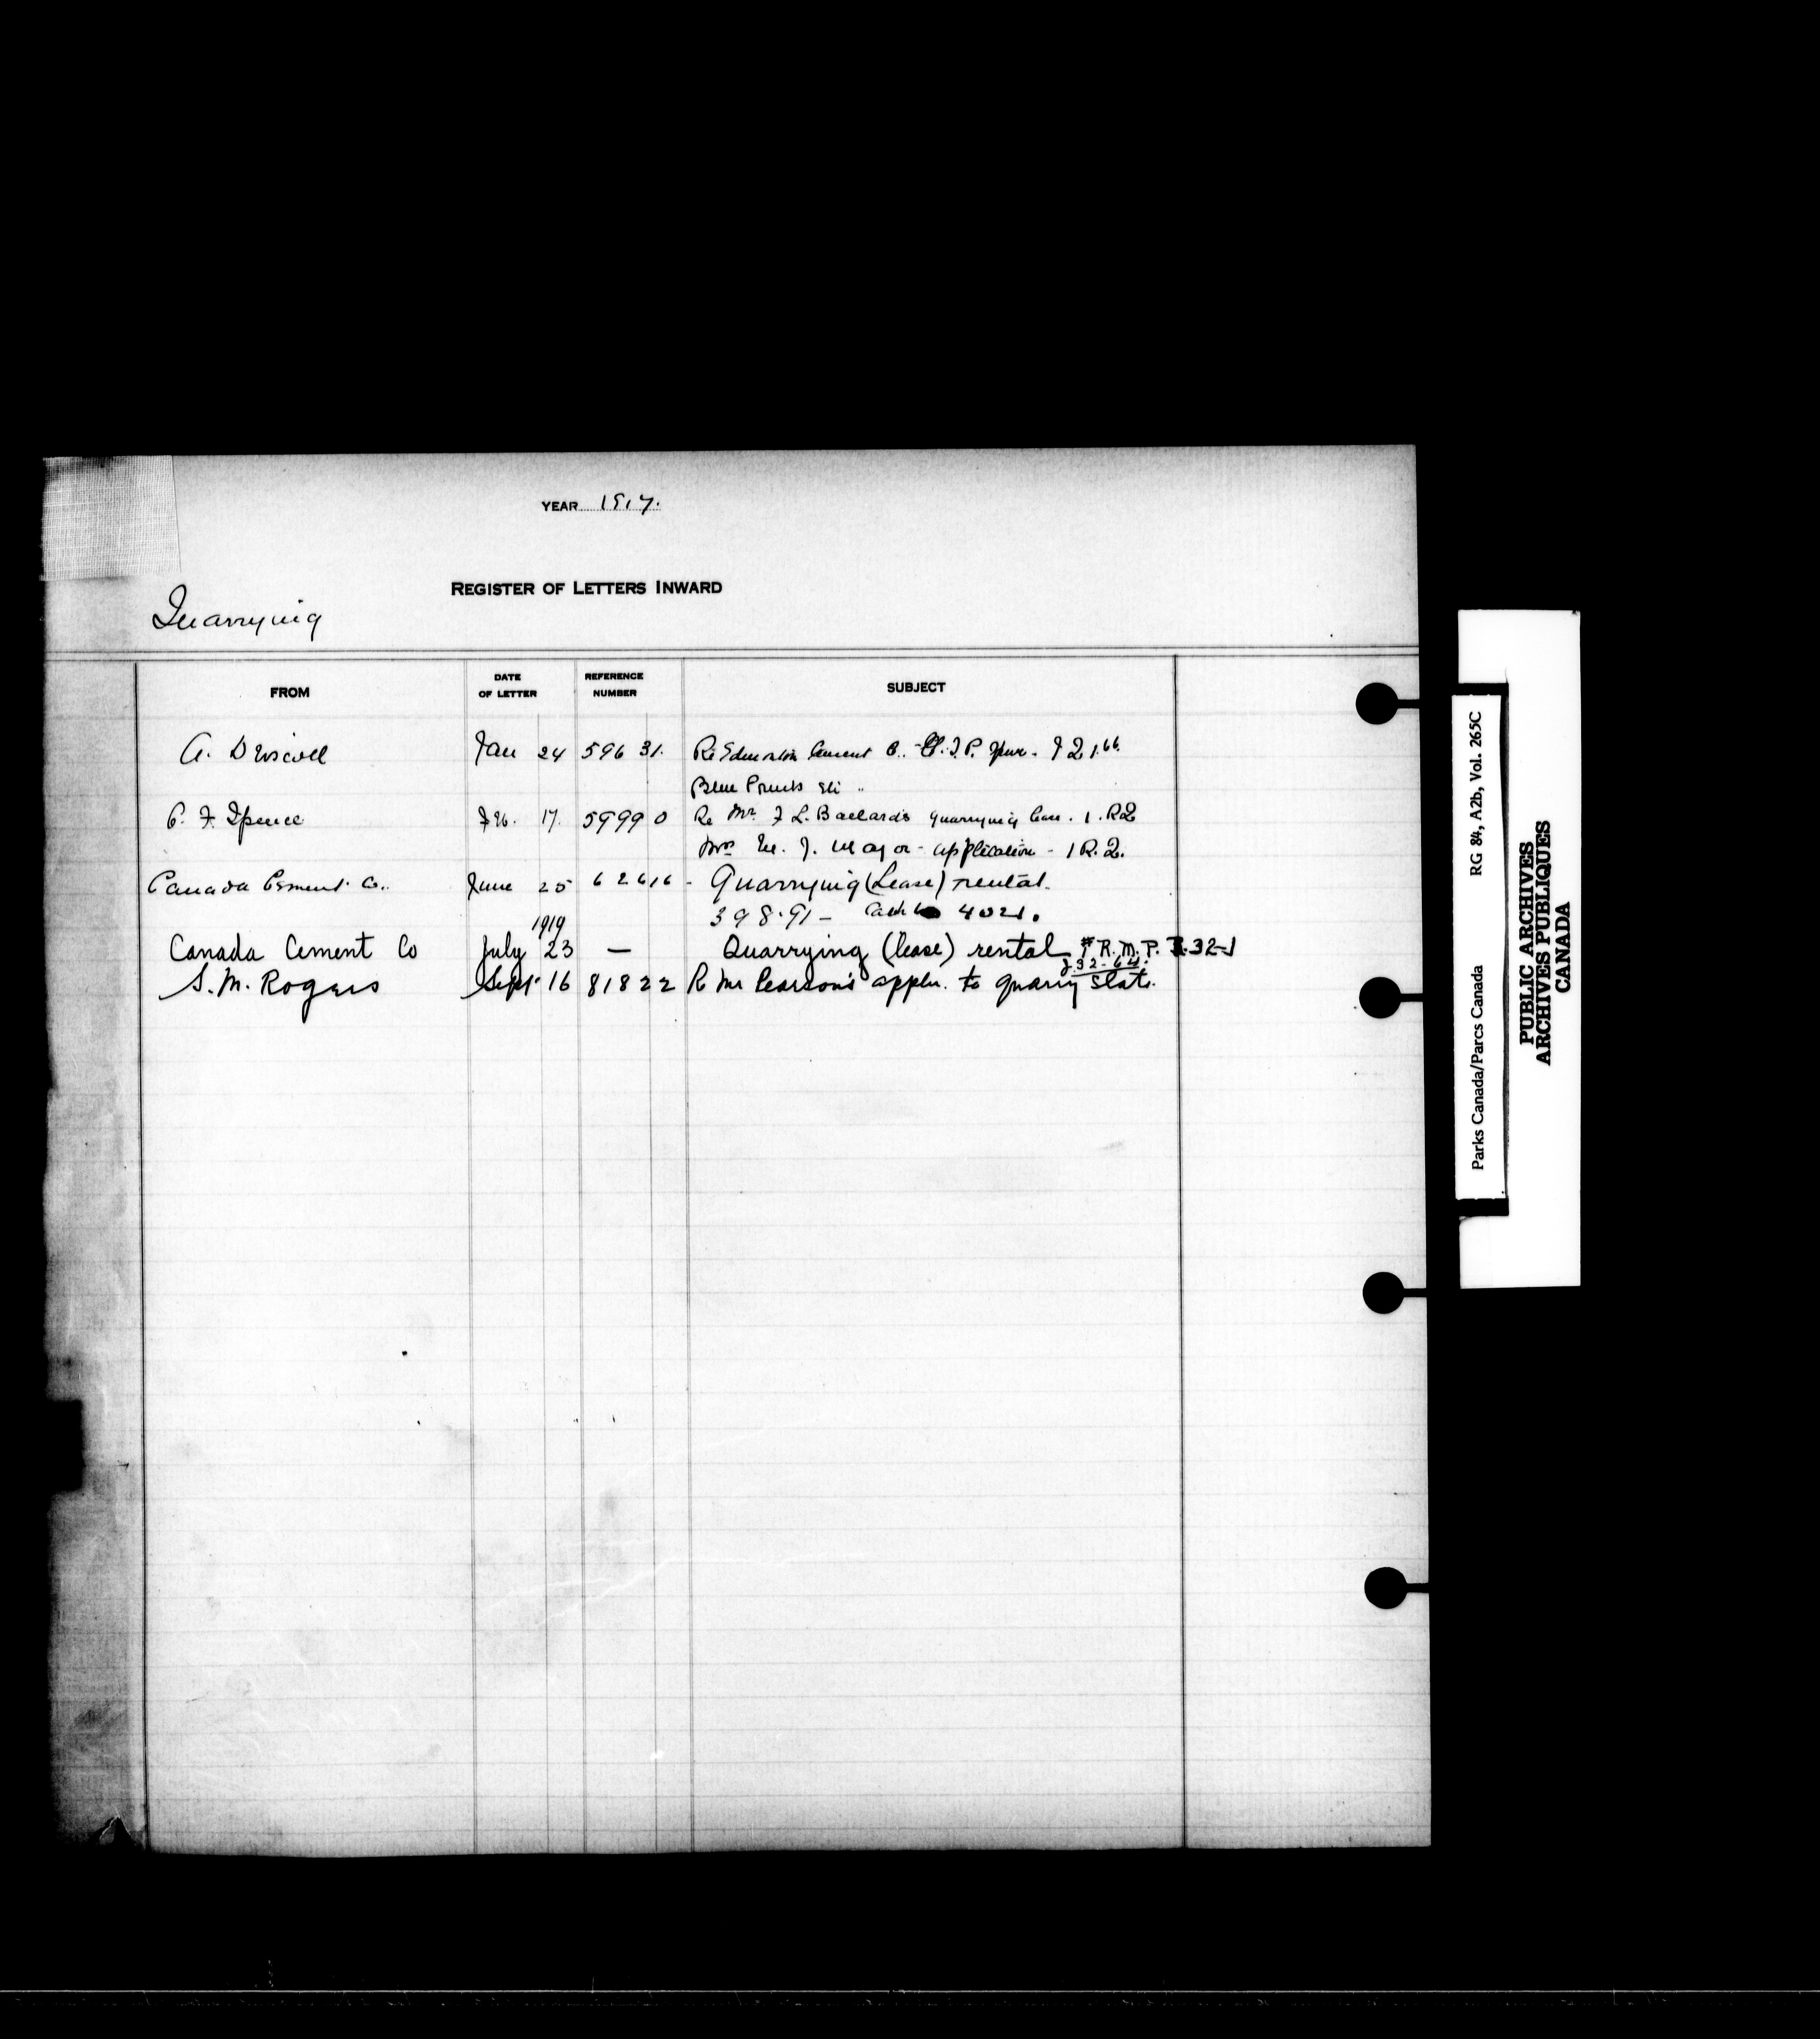 YEAR 1917.
REGISTER OF LETTERS INWARD
Quarrying
FROM DATE OF LETTER REFERENCE NUMBER SUBJECT
A. Driscoll Jan 24 59631. Re Edmonton Cement Co. G.T.P. Spur - J 21.66.
Blue Prints
P. F. Spence Feb. 17. 59990 Re Mr. F L. Ballard's quarrying lease. 1. R2
Mrs M. J. Major - application - 1 R. 2.
Canada Cement Co.. June 25 62616 - Quarrying (Lease) rental.
398.91 - Cash 4021.
1919
Canada Cement Co July 23 — Quarrying (lease) rental # R.M.P. 32-1
J.32-64.
S. M. Rogers Sept 16 81822 R Mr Pearson's appln. to quarry slate.
Parks Canada/Parcs Canada RG 84, A2b, Vol. 265C
PUBLIC ARCHIVES
ARCHIVES PUBLIQUES
CANADA